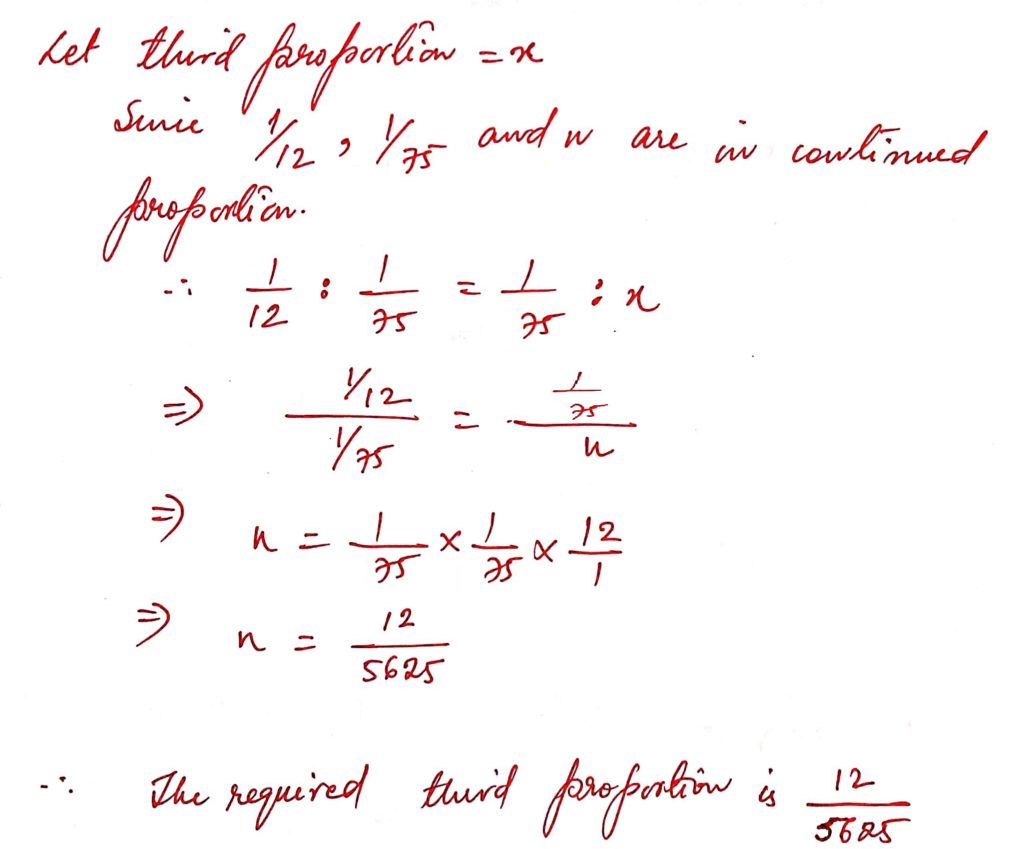 Let third proportion = x
Since 1/12 , 1/75 and x are in continued
proportion.
∴ 1/12 : 1/75 = 1/75 : x
⇒ (1/12)/(1/75) = (1/75)/x
⇒ x = 1/75 × 1/75 × 12/1
⇒ x = 12/5625
∴ The required third proportion is 12/5625